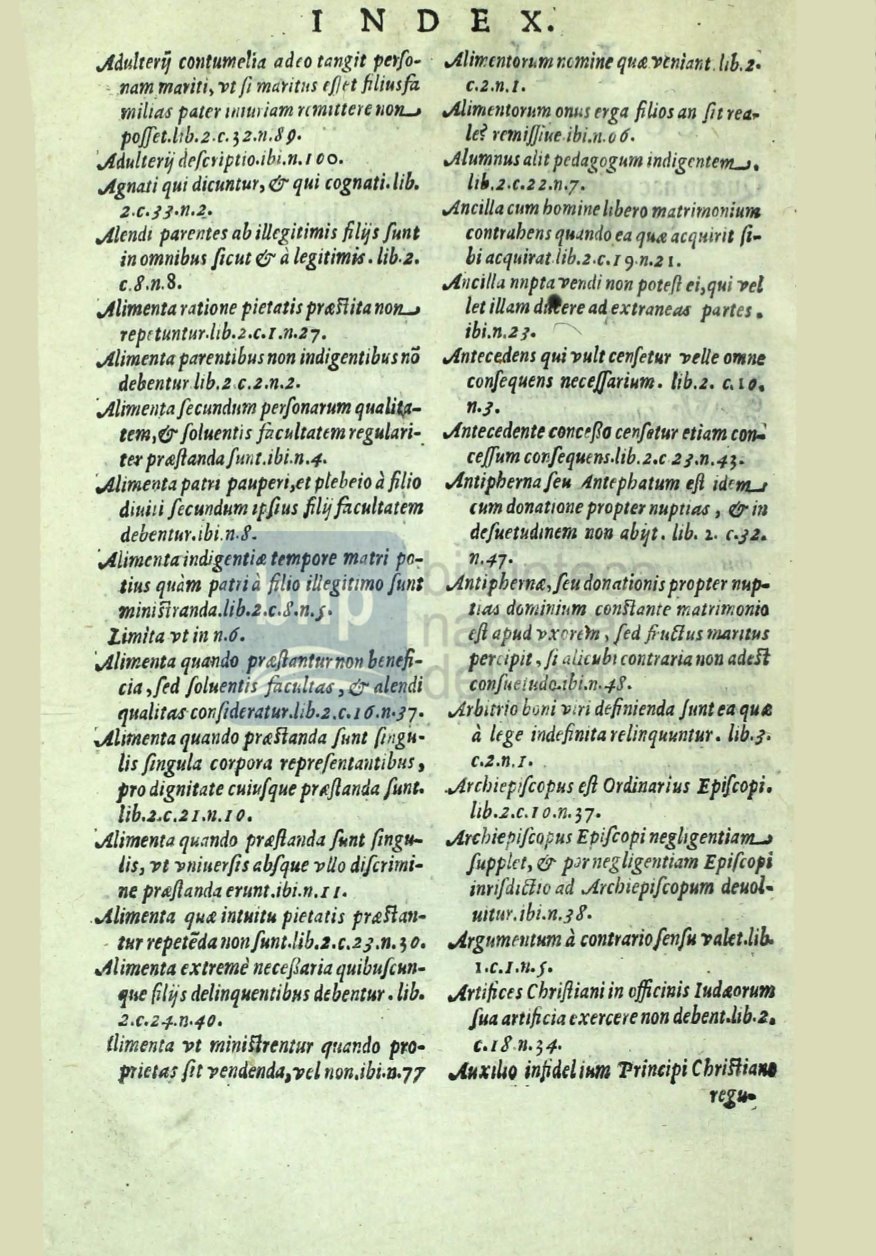 INDEX.
Adulterij contumelia adeo tangit perſo-
nam mariti, vt ſi maritus eſſet filiusfa
milias pater iniuriam remittere non
poſſet.lib.2.c.32.n.89.
Adulterij deſcriptio.ibi.n.100.
Agnati qui dicuntur, & qui cognati.lib.
2.c.33.n.2.
Alendi parentes ab illegitimis filijs ſunt
in omnibus ſicut & à legitimis. lib.2.
c.8.n.8.
Alimenta ratione pietatis præſtita non
repetuntur.lib.2.c.1.n.27.
Alimenta parentibus non indigentibus nō
debentur lib.2 c.2.n.2.
Alimenta ſecundum perſonarum qualita-
tem, & ſoluentis facultatem regulari-
ter præſtanda ſunt.ibi.n.4.
Alimenta patri pauperi, et plebeio à filio
diuiti ſecundum ipſius filij facultatem
debentur.ibi.n.8.
Alimenta indigentiæ tempore matri po-
tius quàm patri à filio illegitimo ſunt
miniſtranda.lib.2.c.8.n.5.
Limita vt in n.6.
Alimenta quando præſtantur non benefi-
cia, ſed ſoluentis facultas, & alendi
qualitas conſideratur.lib.2.c.16.n.37.
Alimenta quando præſtanda ſunt ſingu-
lis ſingula corpora repreſentantibus,
pro dignitate cuiuſque præſtanda ſunt.
lib.2.c.21.n.10.
Alimenta quando præſtanda ſunt ſingu-
lis, vt vniuerſis abſque vllo diſcrimi-
ne præſtanda erunt.ibi.n.11.
Alimenta quæ intuitu pietatis præſtan-
tur repetēda non ſunt.lib.2.c.23.n.30.
Alimenta extremè neceßaria quibuſcun-
que filijs delinquentibus debentur. lib.
2.c.24.n.40.
Alimenta vt miniſtrentur quando pro-
prietas ſit vendenda, vel non.ibi.n.77
Alimentorum nomine quæ veniant. lib.2.
c.2.n.1.
Alimentorum onus erga filios an ſit rea-
le? remiſſiue ibi.n.06.
Alumnus alit pedagogum indigentem.
lib.2.c.22.n.7.
Ancilla cum homine libero matrimonium
contrahens quando ea quæ acquirit ſi-
bi acquirat.lib.2.c.19.n.21.
Ancilla nupta vendi non poteſt ei, qui vel
let illam ducere ad extraneas partes.
ibi.n.23.
Antecedens qui vult cenſetur velle omne
conſequens neceſſarium. lib.2. c.10.
n.3.
Antecedente conceßo cenſetur etiam con-
ceſſum conſequens.lib.2.c 23.n.43.
Antipherna ſeu Antephatum eſt idem
cum donatione propter nuptias, & in
deſuetudinem non abijt. lib. 2. c.32.
n.47.
Antiphernæ, ſeu donationis propter nup-
tias dominium conſtante matrimonio
eſt apud vxorem, ſed fructus maritus
percipit, ſi alicubi contraria non adeſt
conſuetudo.ibi.n.48.
Arbitrio boni viri definienda ſunt ea quæ
à lege indefinita relinquuntur. lib.3.
c.2.n.1.
Archiepiſcopus eſt Ordinarius Epiſcopi.
lib.2.c.10.n.37.
Archiepiſcopus Epiſcopi negligentiam
ſupplet, & por negligentiam Epiſcopi
inriſdictio ad Archiepiſcopum deuol-
uitur.ibi.n.38.
Argumentum à contrario ſenſu valet.lib.
1.c.1.n.5.
Artifices Chriſtiani in officinis Iudæorum
ſua artificia exercere non debent.lib.2.
c.18.n.34.
Auxilio infidelium Principi Chriſtiano
regu-